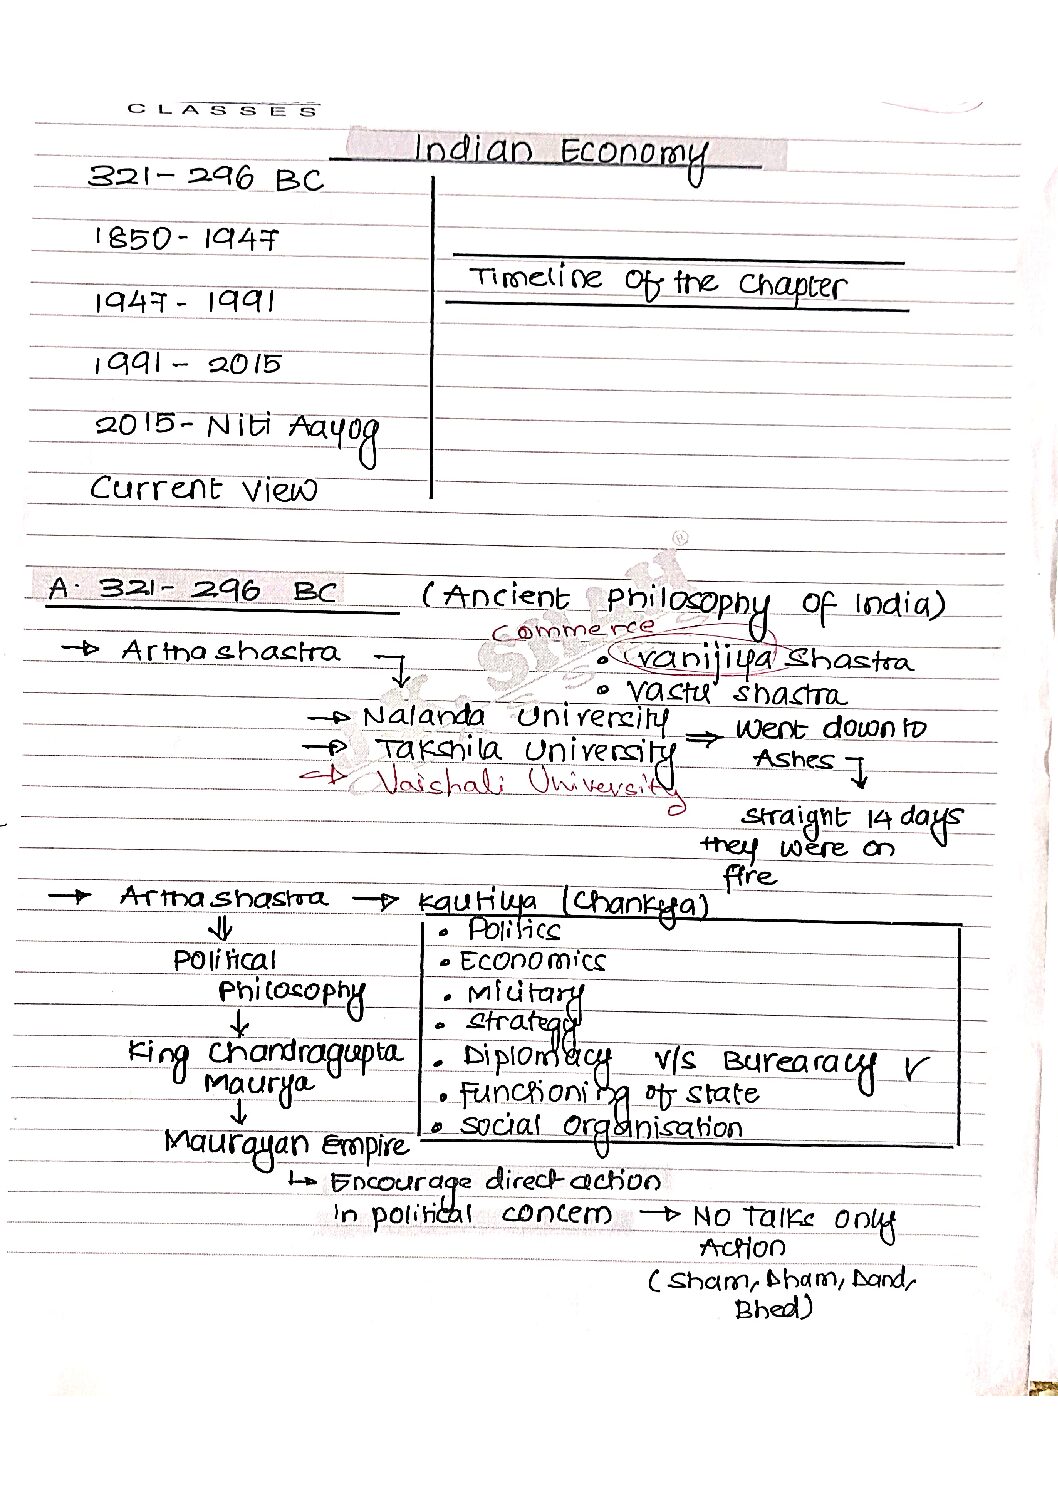 CLASSES
Indian Economy
321 - 296 BC
1850 - 1947
Timeline of the chapter
1947 - 1991
1991 - 2015
2015 - Niti Aayog
Current view
®
A. 321 - 296 BC (Ancient Philosophy of India)
Commerce
→ Arthashastra • Vanijiya Shastra
• Vastu shastra
→ Nalanda University ⇒ Went down to
→ Takshila University Ashes
→ Vaishali University
straight 14 days
they were on
fire
→ Arthashastra → Kautilya (Chankya)
• Politics
Political • Economics
Philosophy • Military
• Strategy
King Chandragupta • Diplomacy v/s Burearacy ✓
Maurya • Functioning of state
• Social Organisation
Maurayan Empire
↳ Encourage direct action
in political concern → No Talks only
Action
(Sham, Dham, Dand,
Bhed)